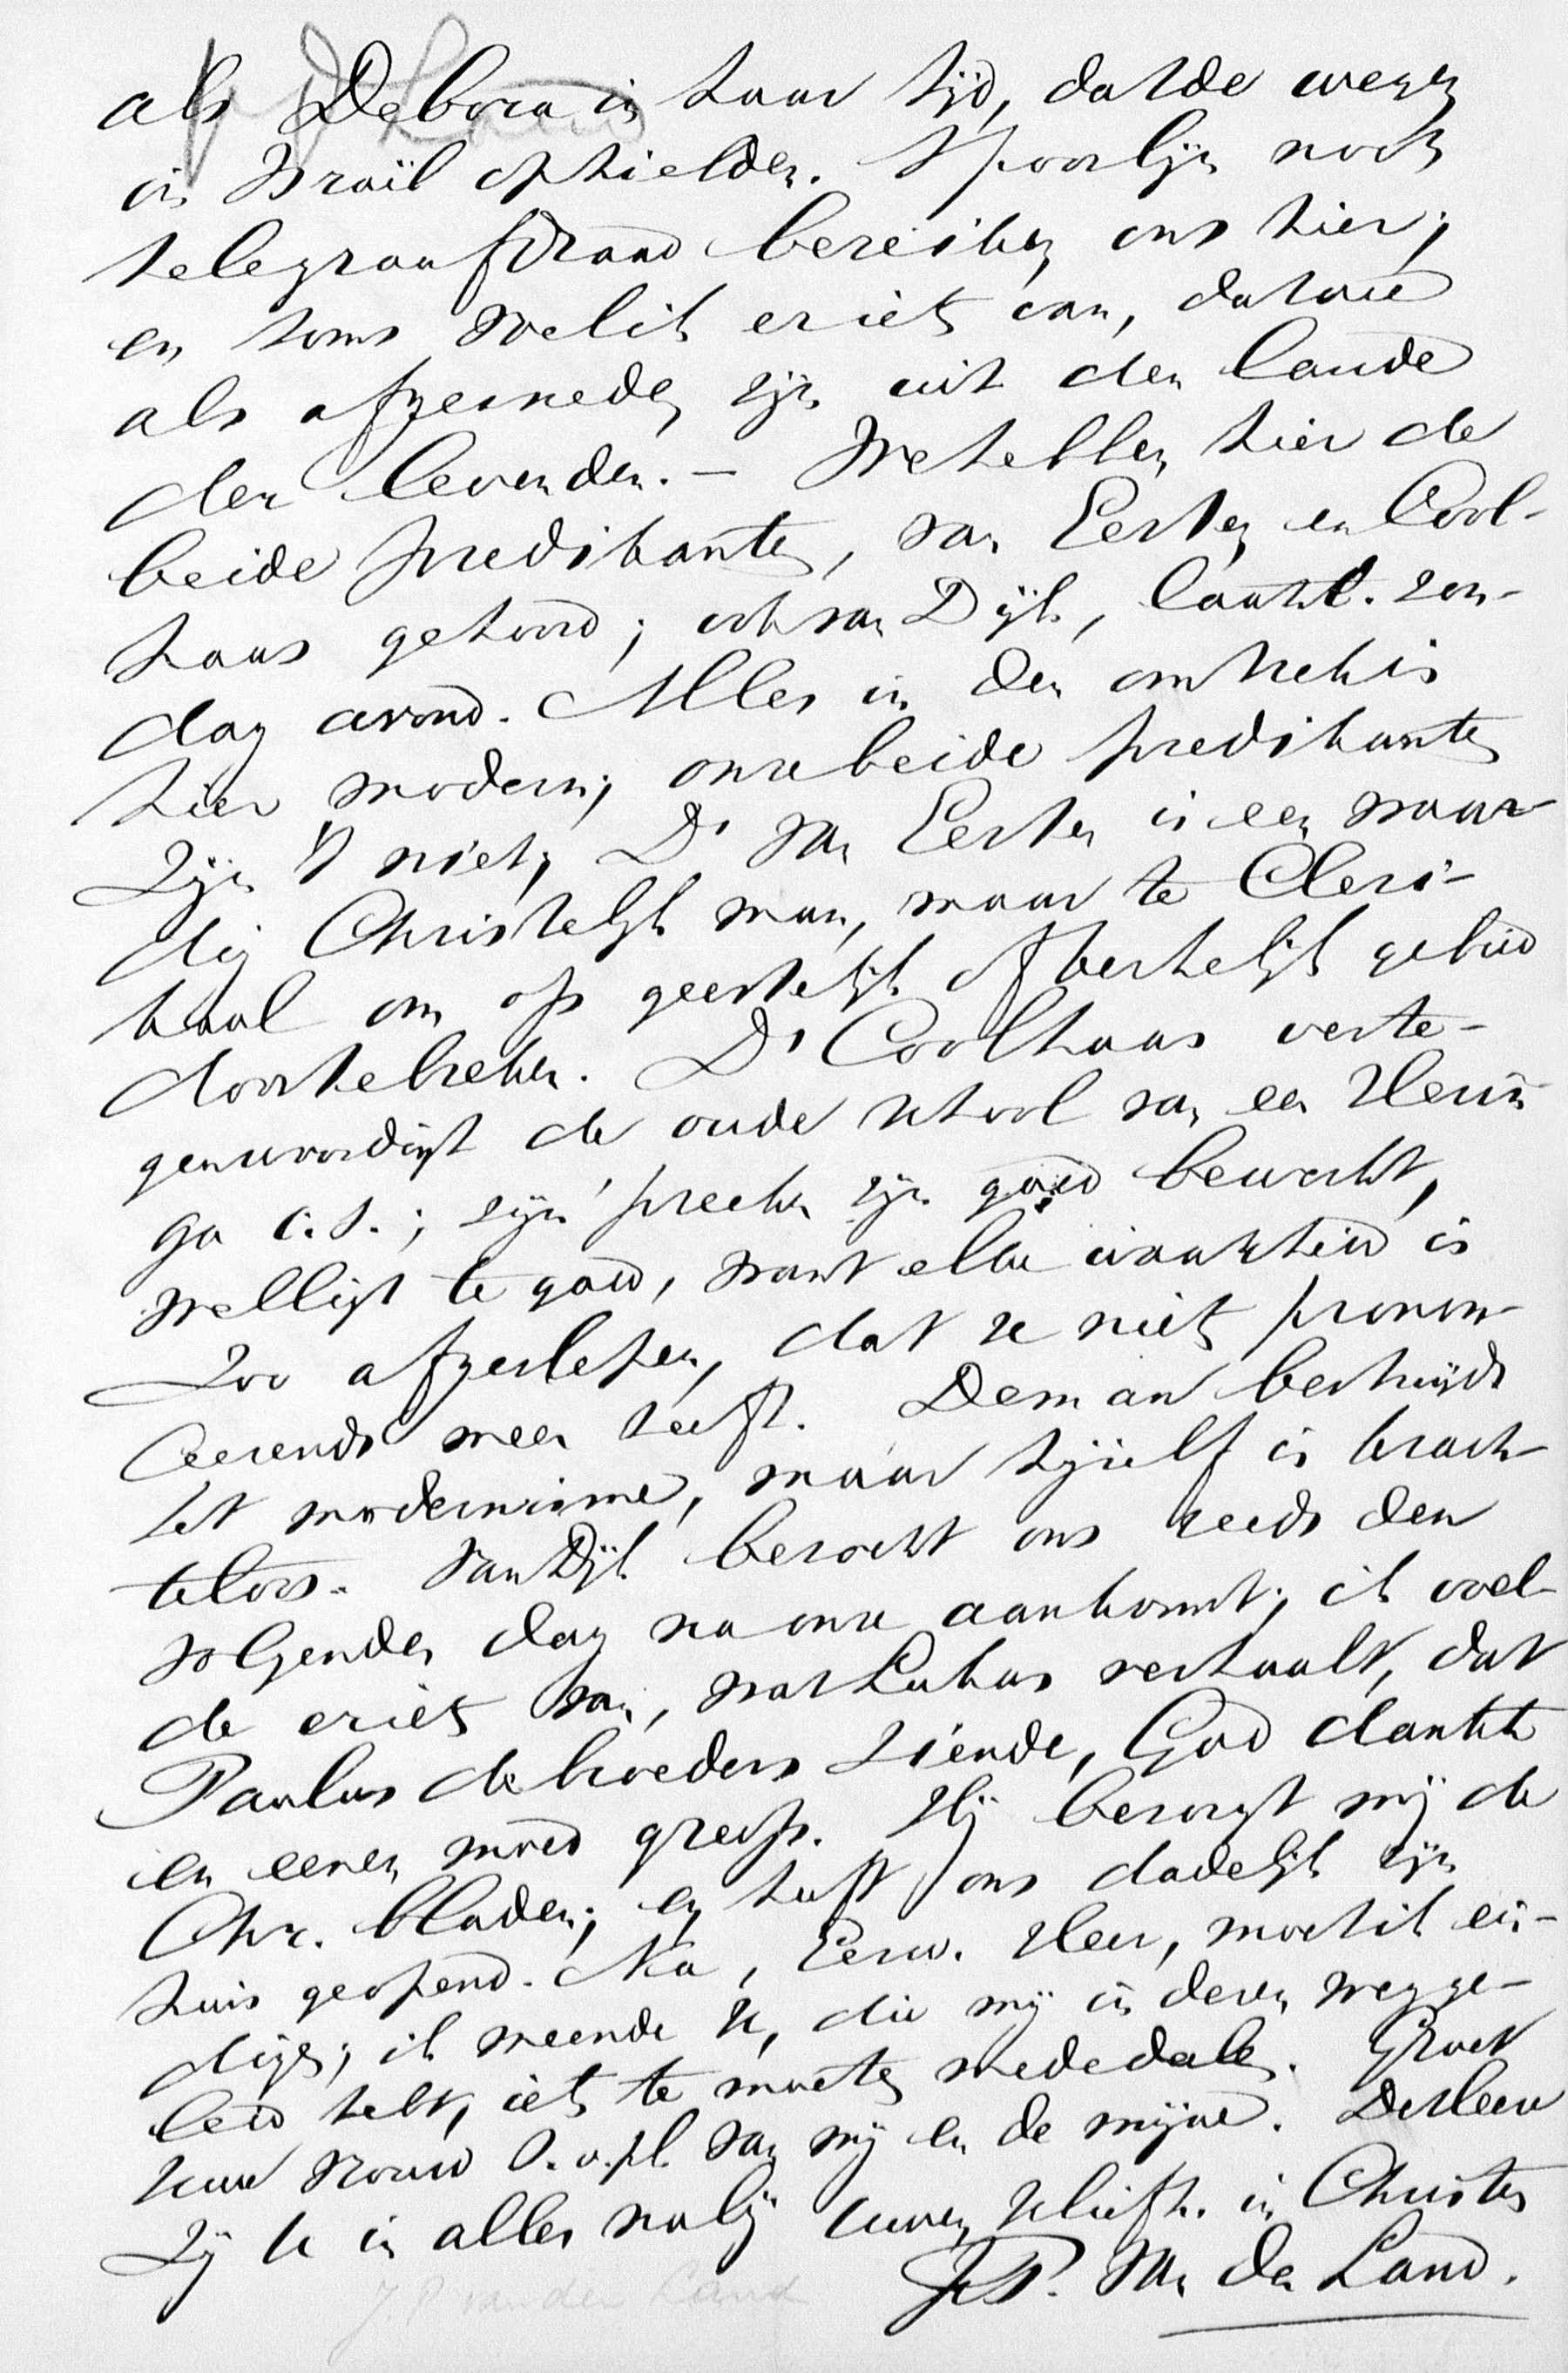 als Debora in haar tijd, dat de wegen
in Israël ophielden. Spoorlijn noch
telegraafdraad bereiken ons hier;
en soms voel ik er iets van, dat we
als afgesneden zijn uit den lande
der levenden. – We hebben hier de
beide predikanten, van Eerten en Cool-
haas gehoord; ook van Dijk, laatstl. zon-
dag avond. Alles in den omtrek is
hier modern; onze beide predikanten
zijn 't niet; Ds van Eerten is een waar-
dig Christelijk man, maar te Cleri-
kaal om op geestelijk of kerkelijk gebied
door te breken. Ds Coolhaas verte-
genwoordigt de oude school van een Herin-
ga c.s.; zijn preeken zijn goed bewerkt,
welligt te goed, want elke waarheid is
zoo afgeslepen, dat ze niets pronon-
ceerends meer heeft. De man bestrijdt
het modernisme, maar hij zelf is krach-
teloos. Van Dijk bezocht ons reeds den
volgenden dag na onze aankomst; ik voel-
de er iets van, wat Lukas verhaalt, dat
Paulus de broeders ziende, God dankte
en eenen moed greep. Hij bezorgt mij de
Chr. bladen; en heeft ons dadelijk zijn
huis geopend. Nu, Eerw. Heer, moet ik ein-
digen; ik meende U, die mij in dezen weg ge-
leid hebt, iets te moeten mededeelen. Groet
uwe vrouw s.v.pl. van mij en de mijne. De Heere
zij U in alles nabij Uwen liefh. in Christus
J.P. van der Land.
J. P van der Land